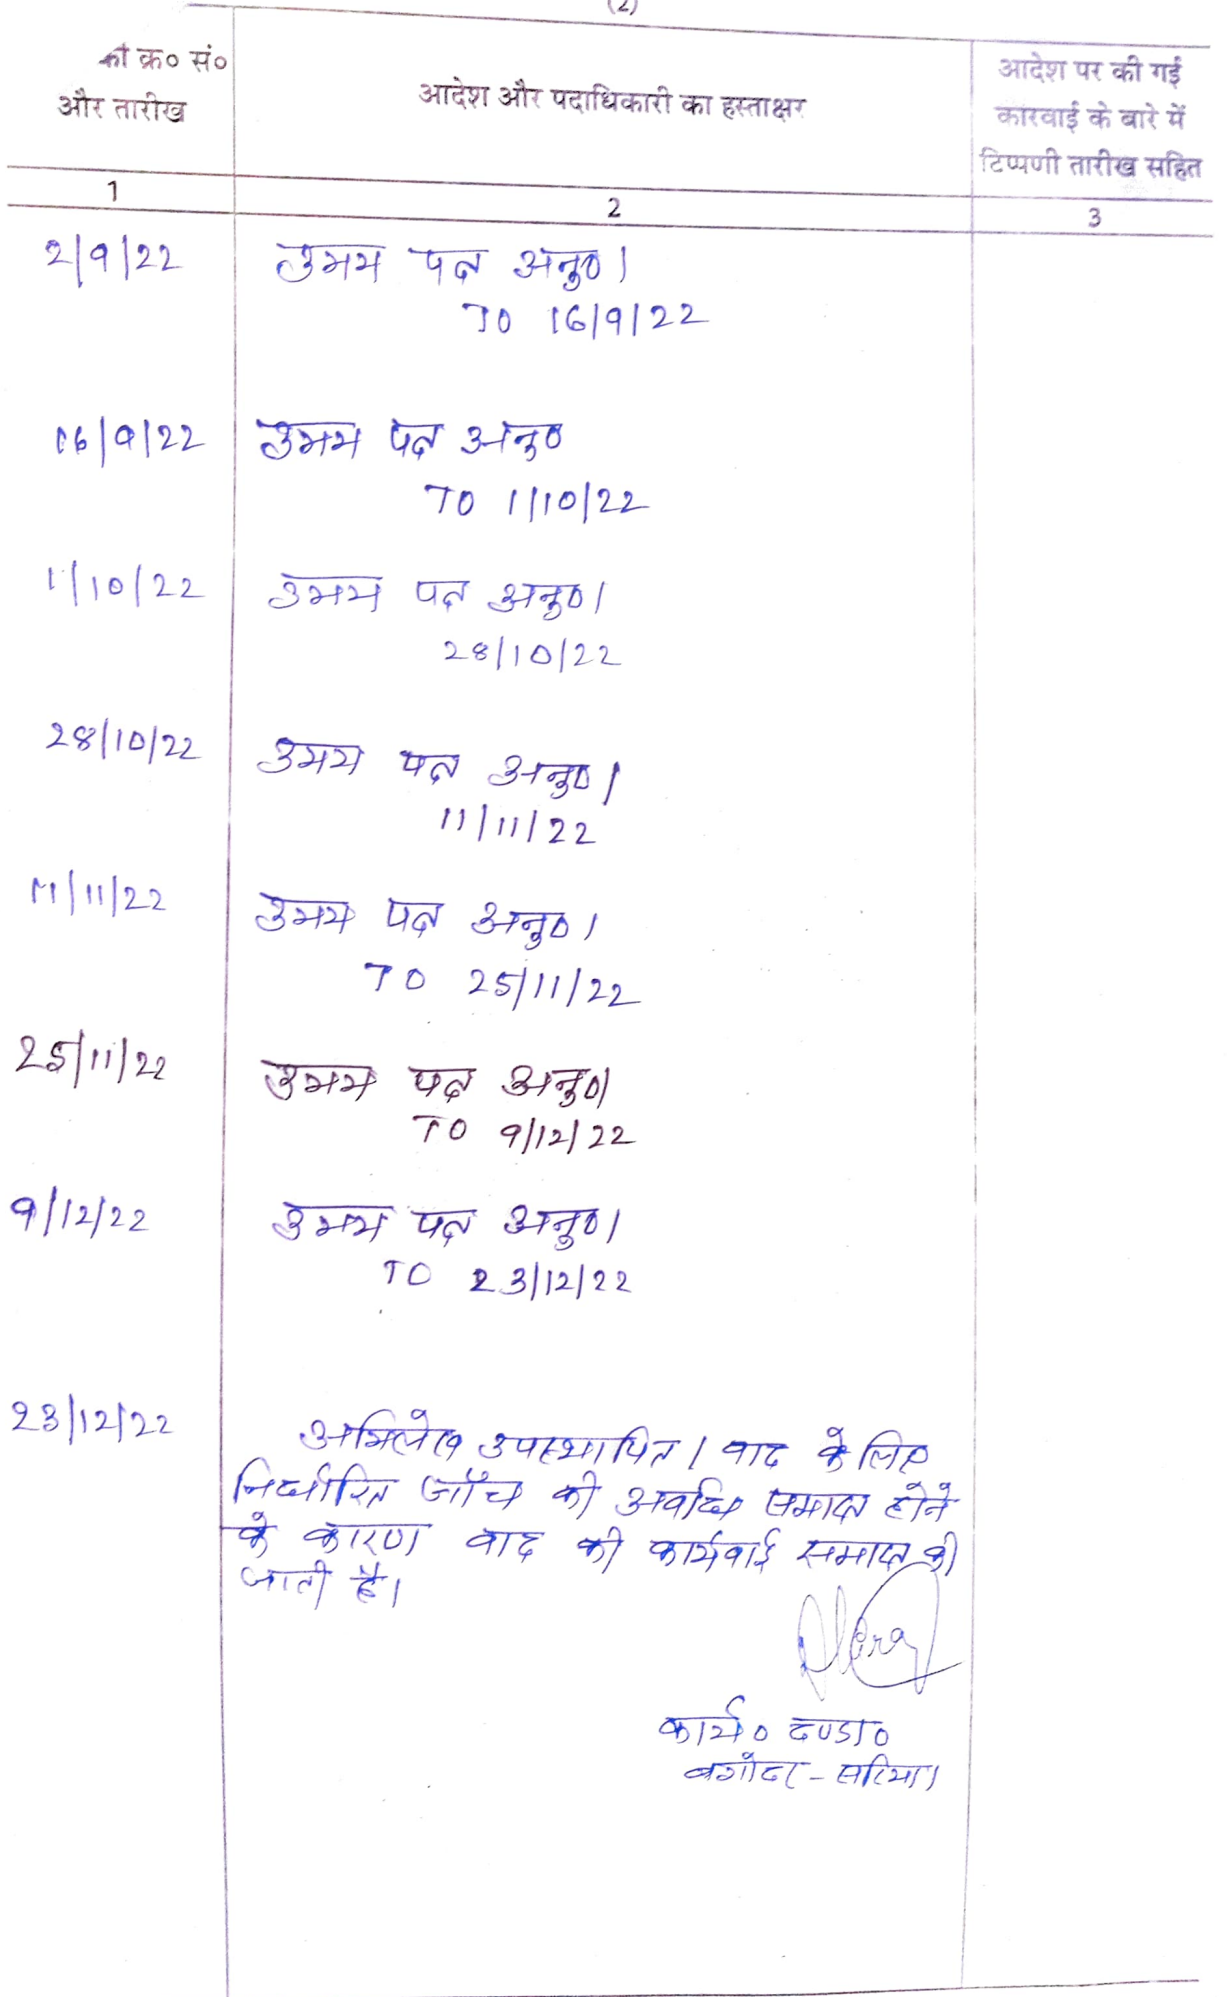 (2)
की क्र० सं०
और तारीख
आदेश और पदाधिकारी का हस्ताक्षर
आदेश पर की गई
कारवाई के बारे में
टिप्पणी तारीख सहित
1
2
3
2/9/22 उभय पक्ष अनु०।
TO 16/9/22
16/9/22 उभय पक्ष अनु०
TO 1/10/22
1/10/22 उभय पक्ष अनु०।
28/10/22
28/10/22 उभय पक्ष अनु०।
11/11/22
11/11/22 उभय पक्ष अनु०।
TO 25/11/22
25/11/22 उभय पक्ष अनु०।
TO 9/12/22
9/12/22 उभय पक्ष अनु०।
TO 23/12/22
23/12/22 अभिलेख उपस्थापित। वाद के लिए
निर्धारित जाँच की अवधि समाप्त होने
के कारण वाद की कार्यवाई समाप्त की
जाती है।
कार्य० दण्डा०
बगोदर - सरिया।